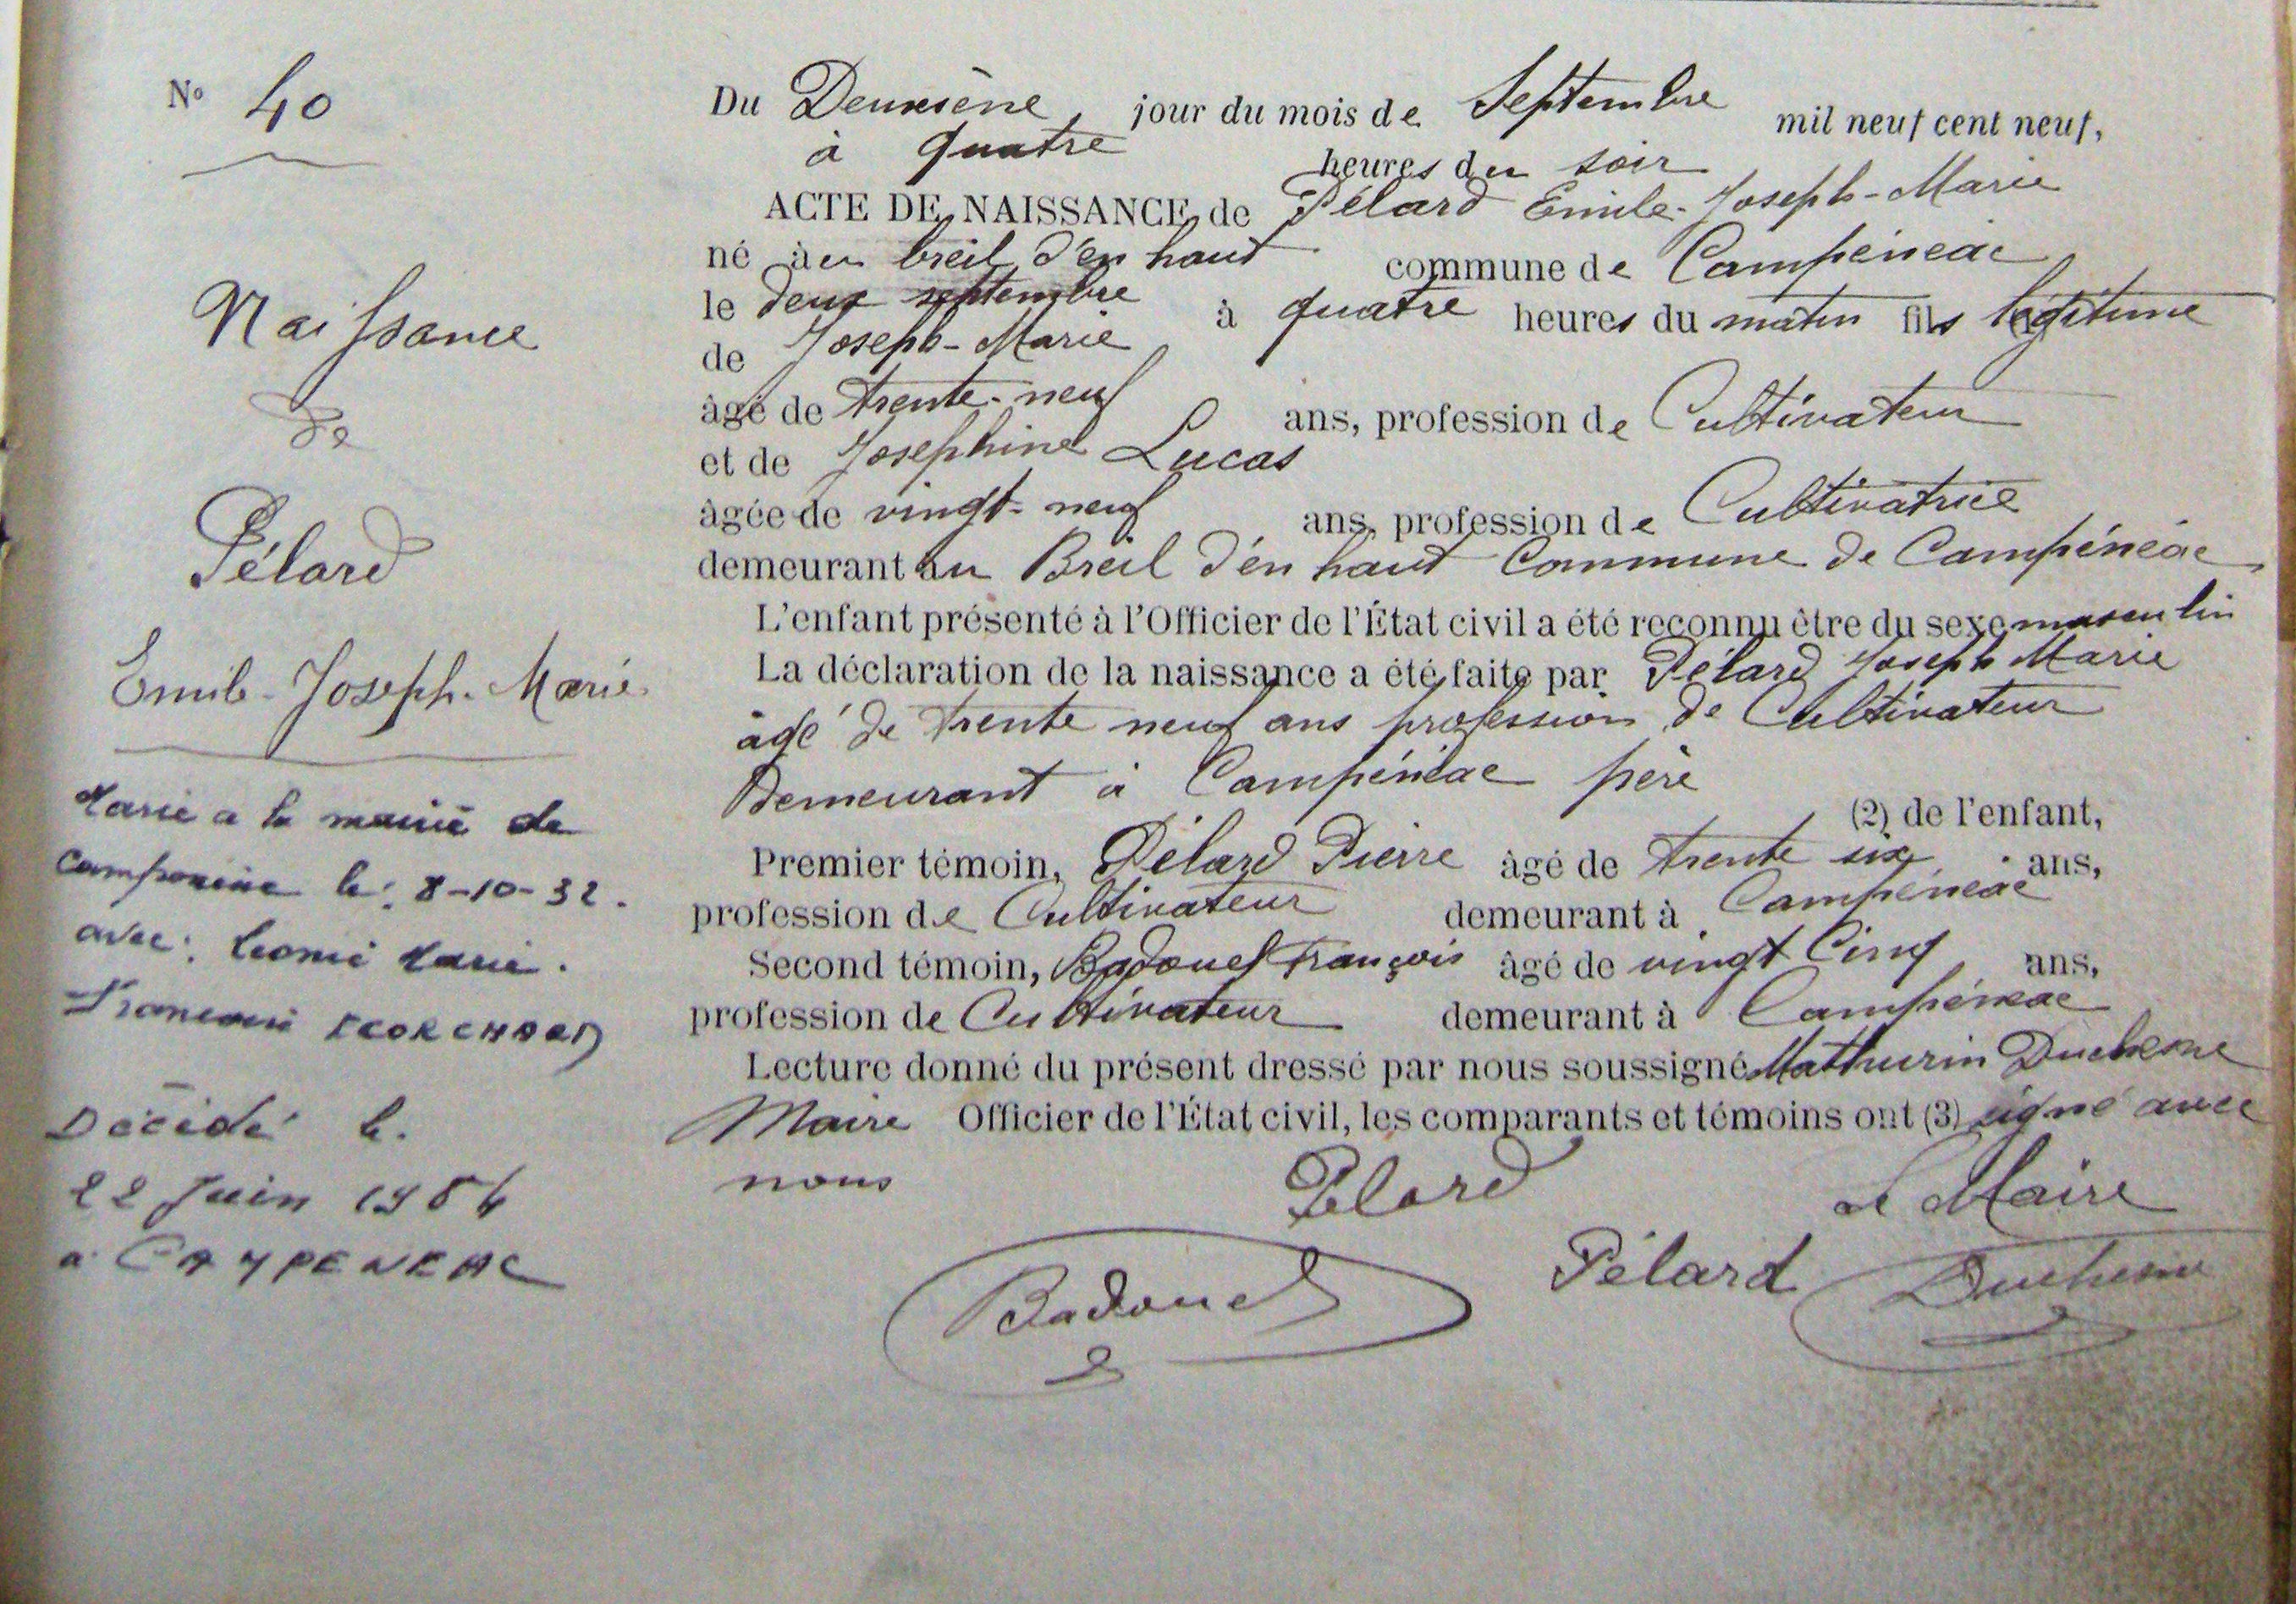 N° 40
Naissance
de
Pélard
Emile-Joseph-Marie
Marié a la mairie de
Campeneac le: 8-10-32.
avec: Leonie Marie.
Francoise ECORCHARD
Décédé le.
22 Juin 1984
a CAMPENEAC
Du Deuxième jour du mois de Septembre mil neuf cent neuf,
à quatre heures du soir
ACTE DE NAISSANCE de Pélard Emile-Joseph-Marie
né au breil d'en haut commune de Campénéac
le deux septembre à quatre heures du matin fils légitime
de Joseph-Marie
âgé de trente-neuf ans, profession de Cultivateur
et de Joséphine Lucas
âgée de vingt-neuf ans, profession de Cultivatrice
demeurant au Breil d'en haut Commune de Campénéac
L'enfant présenté à l'Officier de l'État civil a été reconnu être du sexe masculin
La déclaration de la naissance a été faite par Pélard Joseph Marie
âgé de trente neuf ans profession de Cultivateur
demeurant à Campénéac père
(2) de l'enfant,
Premier témoin, Pélard Pierre âgé de trente six ans,
profession de Cultivateur demeurant à Campénéac
Second témoin, Badouel François âgé de vingt cinq ans,
profession de Cultivateur demeurant à Campénéac
Lecture donné du présent dressé par nous soussigné Mathurin Duchesne
Maire Officier de l'État civil, les comparants et témoins ont (3) signé avec
nous
Pélard
Le Maire
Badouel
Pélard
Duchesne